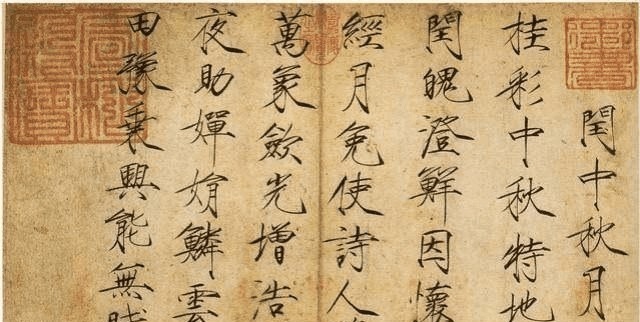 御書
閏中秋月
桂彩中秋特地
閏魄澄鮮因懷
經月免使詩人
萬象歛光增浩
夜助嬋娟鱗雲
田豫乗興能無賦